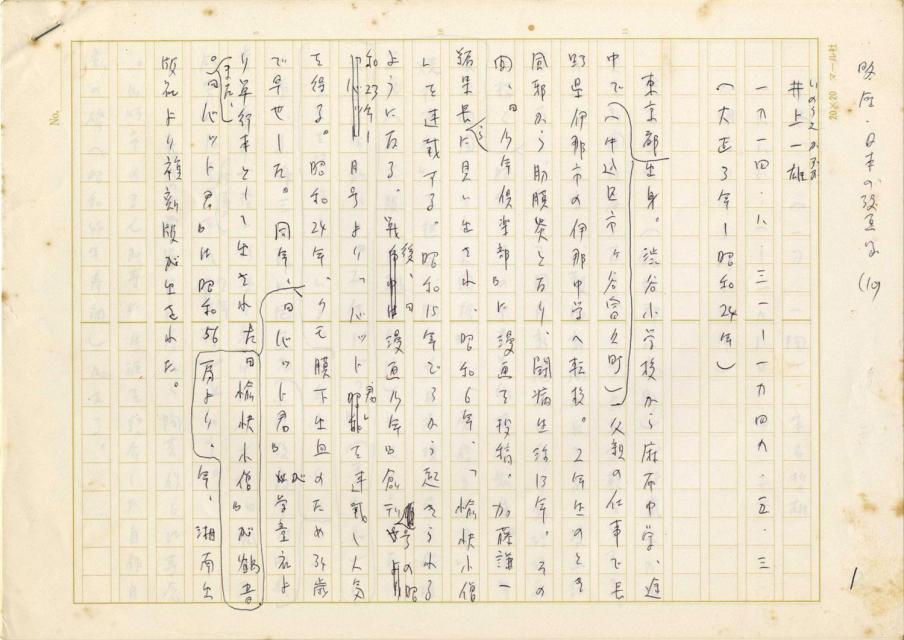 略伝・日本の漫画家 (10)
いのうえかずお
井上一雄
一九一四・一二・三一ー一九四九・五・三
(大正3年ー昭和24年)
東京都出身。渋谷小学校から麻布中学、途
中で(牛込区市ヶ谷富久町)父親の仕事で長
野県伊那市の伊那中学へ転校。2年生のとき
風邪から肋膜炎となり、闘病生活13年。その
間、『少年倶楽部』に漫画を投稿。加藤謙一
編集長に見い出され、昭和6年、「愉快小僧
」を連載する。昭和15年ごろから起きられる
ようになる。戦後、『漫画少年』創刊号の昭
和23年1月号より「バット君」を連載し人気
を得る。昭和24年、クモ膜下出血のため34歳
で早世した。同年、『バット君』が学童社よ
り単行本として出された
また、『愉快小僧』が鶴書
房より、
『バット君』は昭和56年、湘南出
版社より複刻版が出された。
1
20×20 マール社
No.